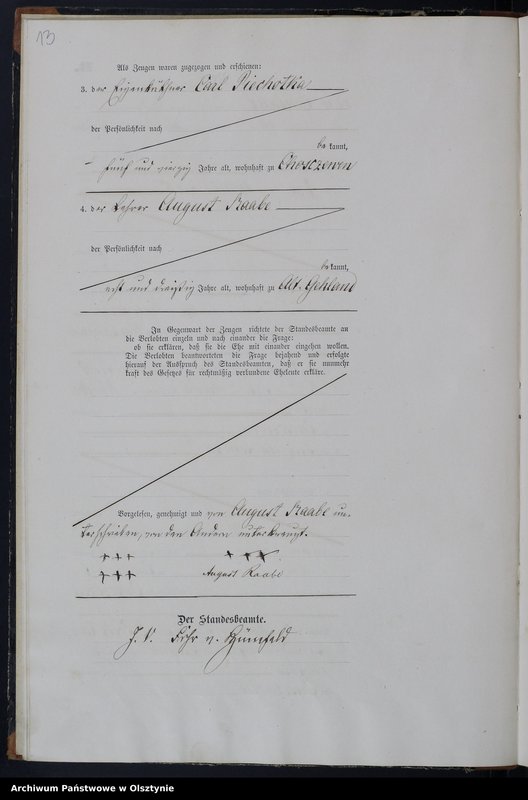 13
Als Zeugen waren zugezogen und erschienen:
3. der Eigenkäthner Carl Piechotka
der Persönlichkeit nach
be kannt,
fünf und vierzig Jahre alt, wohnhaft zu Choszczewen
4. der Lehrer August Raabe
der Persönlichkeit nach
be kannt,
acht und dreißig Jahre alt, wohnhaft zu Alt. Gehland
In Gegenwart der Zeugen richtete der Standesbeamte an
die Verlobten einzeln und nach einander die Frage:
ob sie erklären, daß sie die Ehe mit einander eingehen wollen.
Die Verlobten beantworteten die Frage bejahend und erfolgte
hierauf der Ausspruch des Standesbeamten, daß er sie nunmehr
kraft des Gesetzes für rechtmäßig verbundene Eheleute erkläre.
Vorgelesen, genehmigt und von August Raabe un-
terschrieben, von den Andern unterkreuzt.
+++ +++
+++ August Raabe
Der Standesbeamte.
J. V. Frhr v.
Archiwum Państwowe w Olsztynie